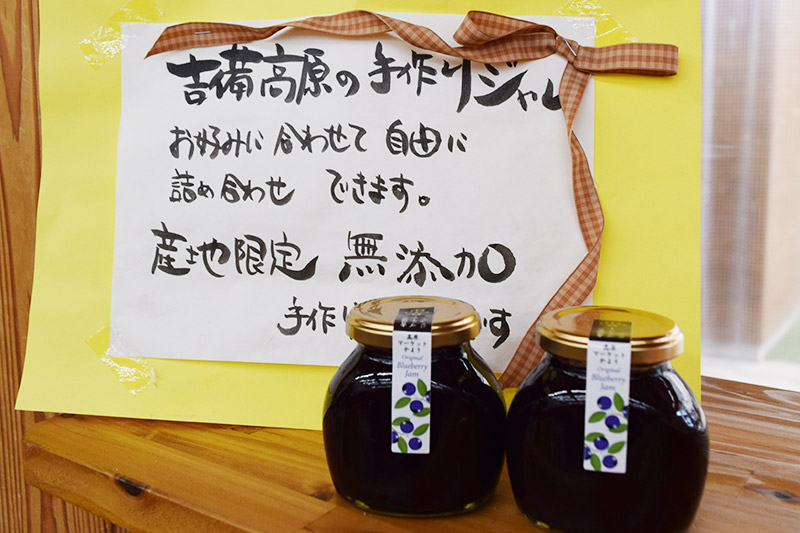 吉備高原の手作りジャム
お好みに合わせて自由に
詰め合わせ できます。
産地限定 無添加
手作り
す
高原
マーケット
かよう
Original
Blueberry
Jam
マーケット
かよう
Original
Blueberry
Jam